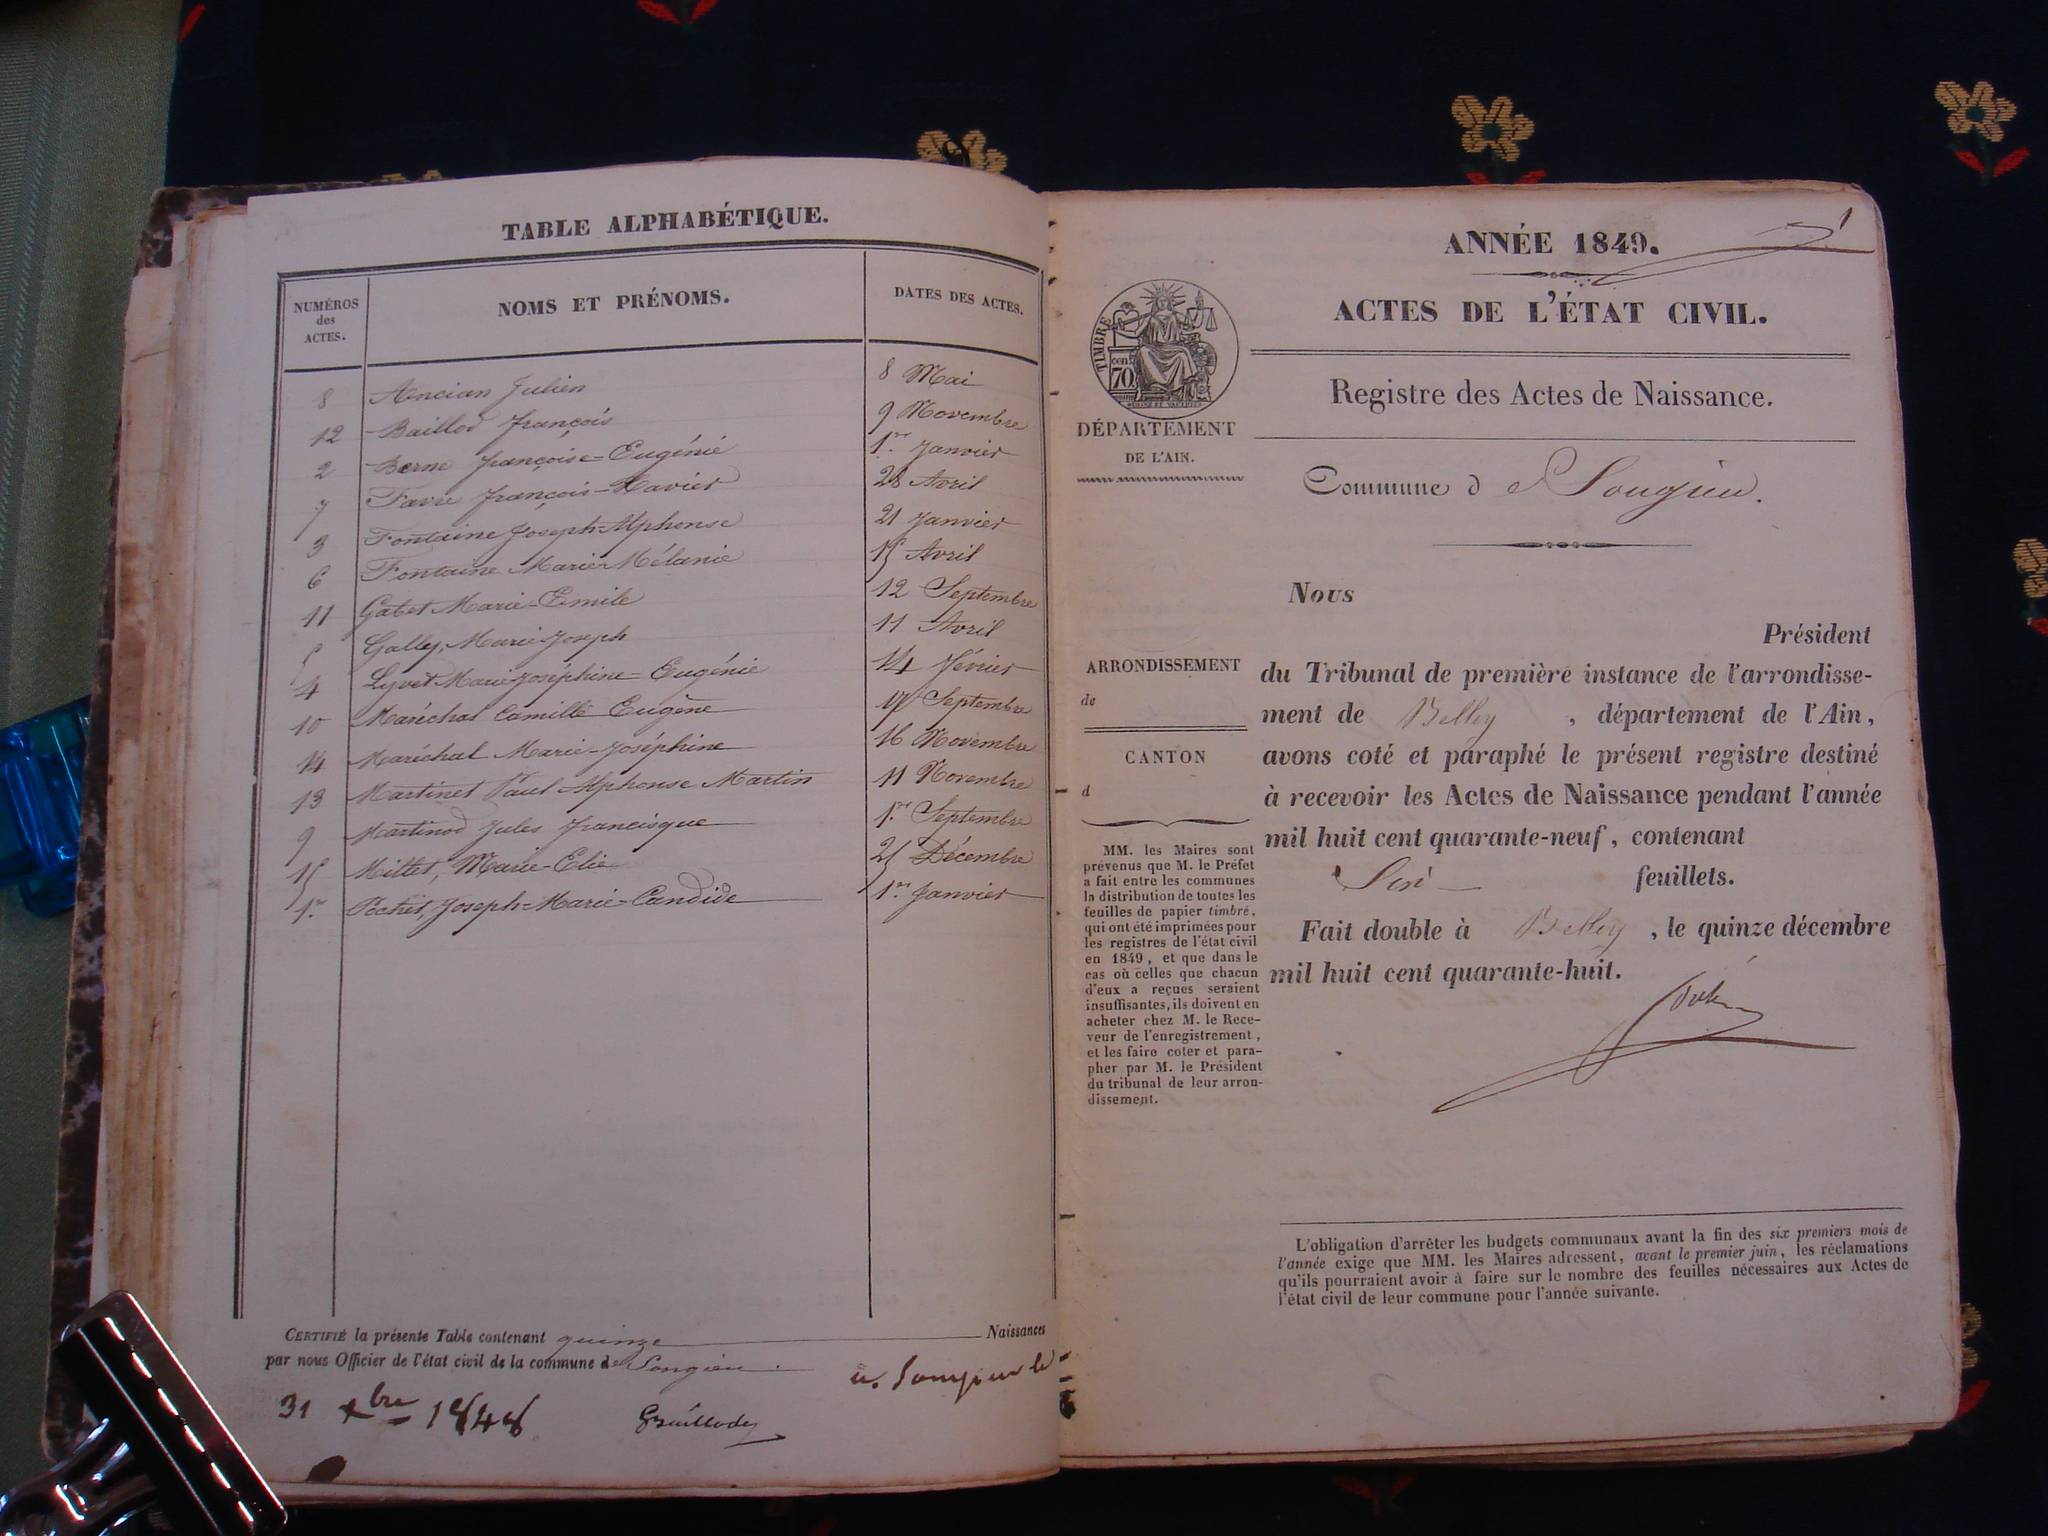 TABLE ALPHABÉTIQUE.
NUMÉROS des ACTES. NOMS ET PRÉNOMS. DATES DES ACTES.
8 Ancian Julien 8 Mai
12 Baillod François 9 Novembre
2 Berne Françoise-Eugénie 1er Janvier
7 Favre François-Xavier 28 Avril
3 Fontaine Joseph-Alphonse 21 Janvier
6 Fontaine Marie-Mélanie 15 Avril
11 Gabet Marie-Emile 12 Septembre
5 Galley, Marie-Joseph 11 Avril
4 Lyvet Marie-Joséphine-Eugénie 14 février
10 Maréchal Camille Eugène Septembre
14 Maréchal Marie-Joséphine 16 Novembre
13 Martinet Paul Alphonse Martin 11 Novembre
9 Martinod Jules francisque 1er Septembre
15 Millet, Marie-Elie 25 Décembre
1er Pochet, Joseph-Marie-Candide 1er Janvier
CERTIFIÉ la présente Table contenant quinze Naissances
par nous Officier de l'état civil de la commune de Songieu.
a Songieu le
31 xbre 1848
ANNÉE 1849.
1
ACTES DE L'ÉTAT CIVIL.
Registre des Actes de Naissance.
TIMBRE
cen. 70
DÉPARTEMENT
DE L'AIN.
Commune de Songieu.
Nous
Président
du Tribunal de première instance de l'arrondisse-
ment de Belley, département de l'Ain,
avons coté et paraphé le présent registre destiné
à recevoir les Actes de Naissance pendant l'année
mil huit cent quarante-neuf, contenant
Six feuillets.
Fait double à Belley, le quinze décembre
mil huit cent quarante-huit.
ARRONDISSEMENT
de
CANTON
d
MM. les Maires sont
prévenus que M. le Préfet
a fait entre les communes
la distribution de toutes les
feuilles de papier timbré,
qui ont été imprimées pour
les registres de l'état civil
en 1849, et que dans le
cas où celles que chacun
d'eux a reçues seraient
insuffisantes, ils doivent en
acheter chez M. le Rece-
veur de l'enregistrement,
et les faire coter et para-
pher par M. le Président
du tribunal de leur arron-
dissement.
L'obligation d'arrêter les budgets communaux avant la fin des six premiers mois de
l'année exige que MM. les Maires adressent, avant le premier juin, les réclamations
qu'ils pourraient avoir à faire sur le nombre des feuilles nécessaires aux Actes de
l'état civil de leur commune pour l'année suivante.